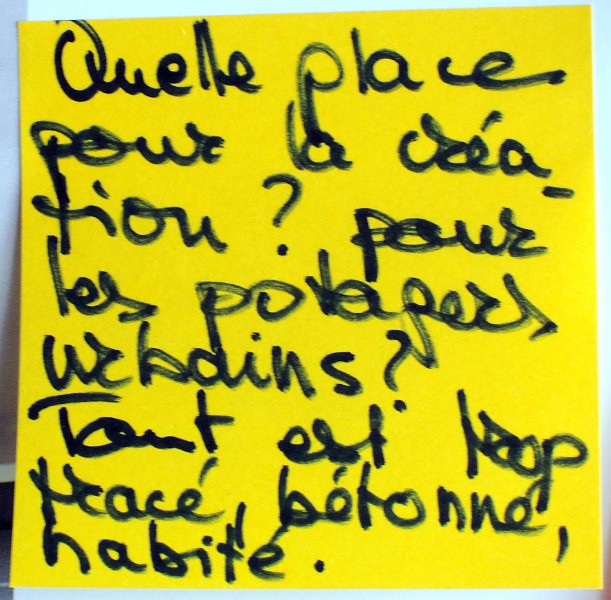 Quelle place
pour la créa-
tion ? pour
les potagers
urbains ?
Tout est trop
tracé, bétonné,
habité.